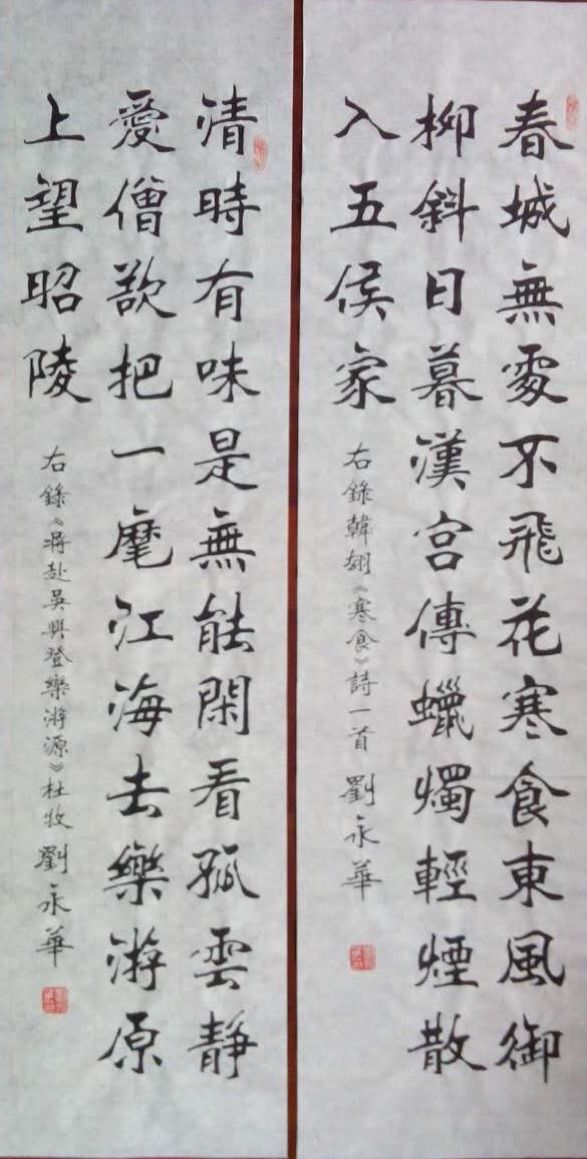 春城無處不飛花寒食東風御
柳斜日暮漢宮傳蠟燭輕煙散
入五侯家
右錄韓翃《寒食》詩一首 劉永華
清時有味是無能閑看孤雲靜
愛僧欲把一麾江海去樂游原
上望昭陵
右錄《將赴吳興登樂游源》杜牧 劉永華